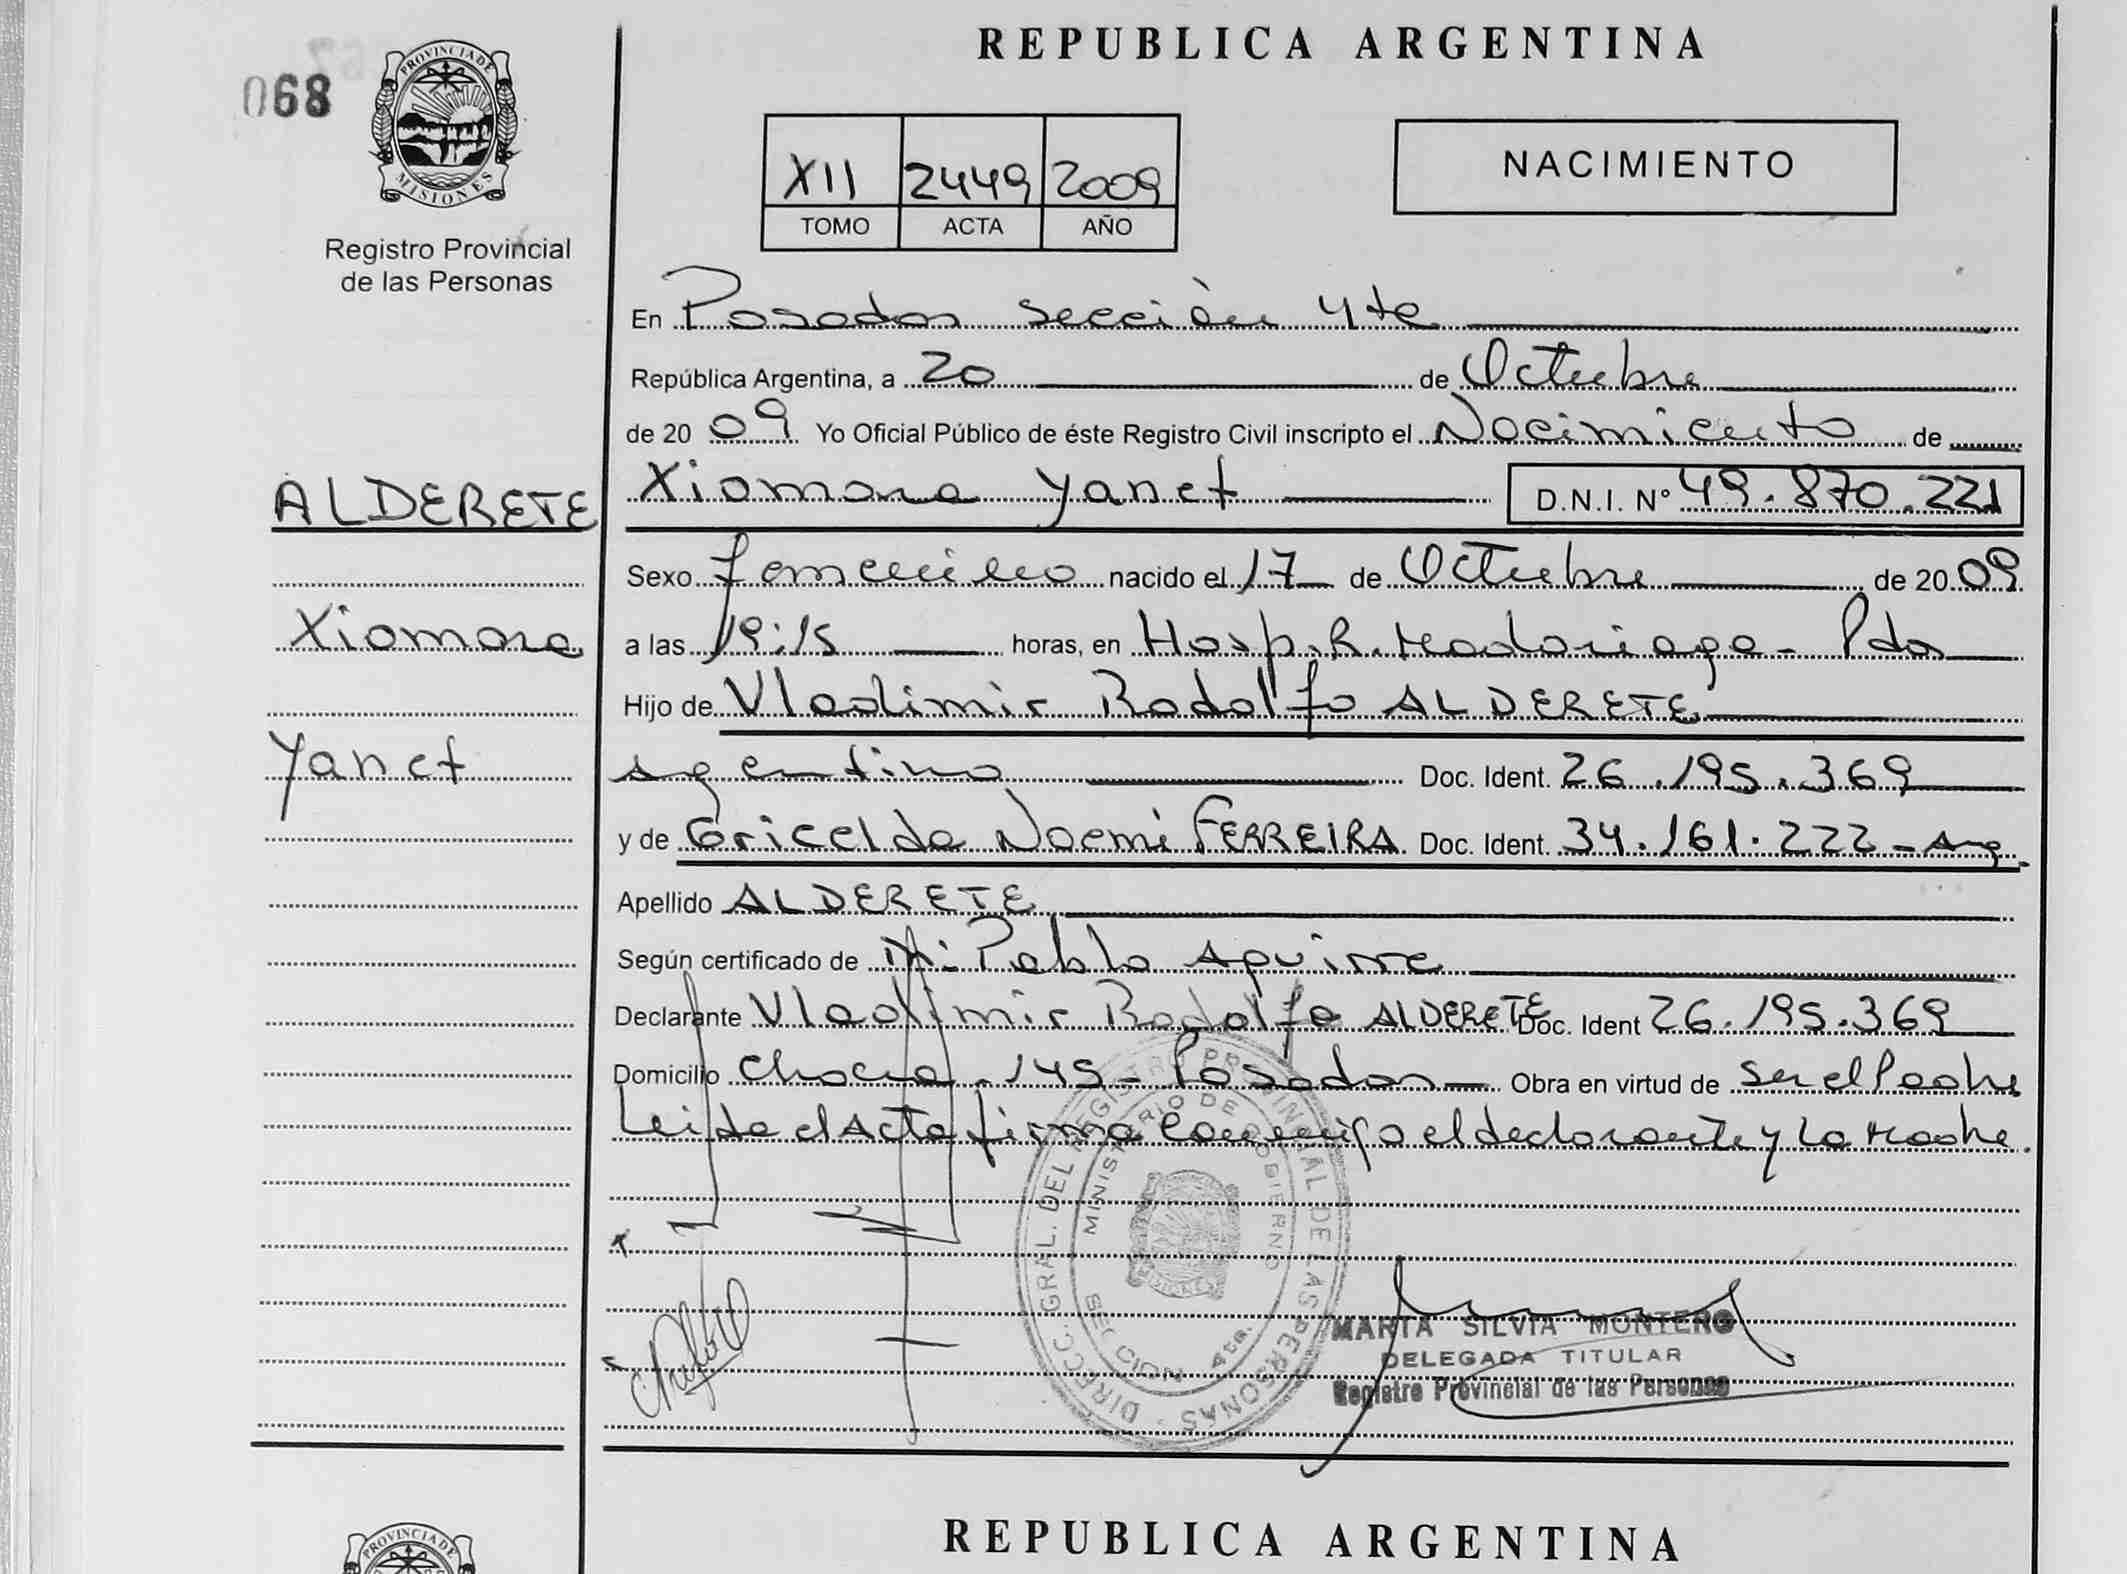 068
PROVINCIA DE
MISIONES
Registro Provincial
de las Personas
REPUBLICA ARGENTINA
XII 2449 2009
TOMO ACTA AÑO
NACIMIENTO
En Posadas sección 4ta
República Argentina, a 20 de Octubre
de 20 09 Yo Oficial Público de éste Registro Civil inscripto el Nacimiento de
ALDERETE
Xiomara Yanet D.N.I. Nº 49.870.221
Sexo femenino nacido el 17 de Octubre de 20 09
Xiomara
a las 19:15 horas, en Hosp. R. Madariaga - Pdas
Hijo de Vladimir Rodolfo ALDERETE
Yanet
argentino Doc. Ident. 26.195.369
y de Gricelda Noemi FERREIRA Doc. Ident. 34.161.222 - Arg.
Apellido ALDERETE
Según certificado de Pablo Aguirre
Declarante Vladimir Rodolfo ALDERETE Doc. Ident 26.195.369
Domicilio 145 - Posadas Obra en virtud de ser el Padre
Leida el Acta firma conmigo el declarante y La Madre.
DIRECC. GRAL. DEL REGISTRO PROVINCIAL DE LAS PERSONAS
MINISTERIO DE GOBIERNO
SECCION 4ta.
MARTA SILVIA MONTERO
DELEGADA TITULAR
Registro Provincial de las Personas
PROVINCIA DE
REPUBLICA ARGENTINA